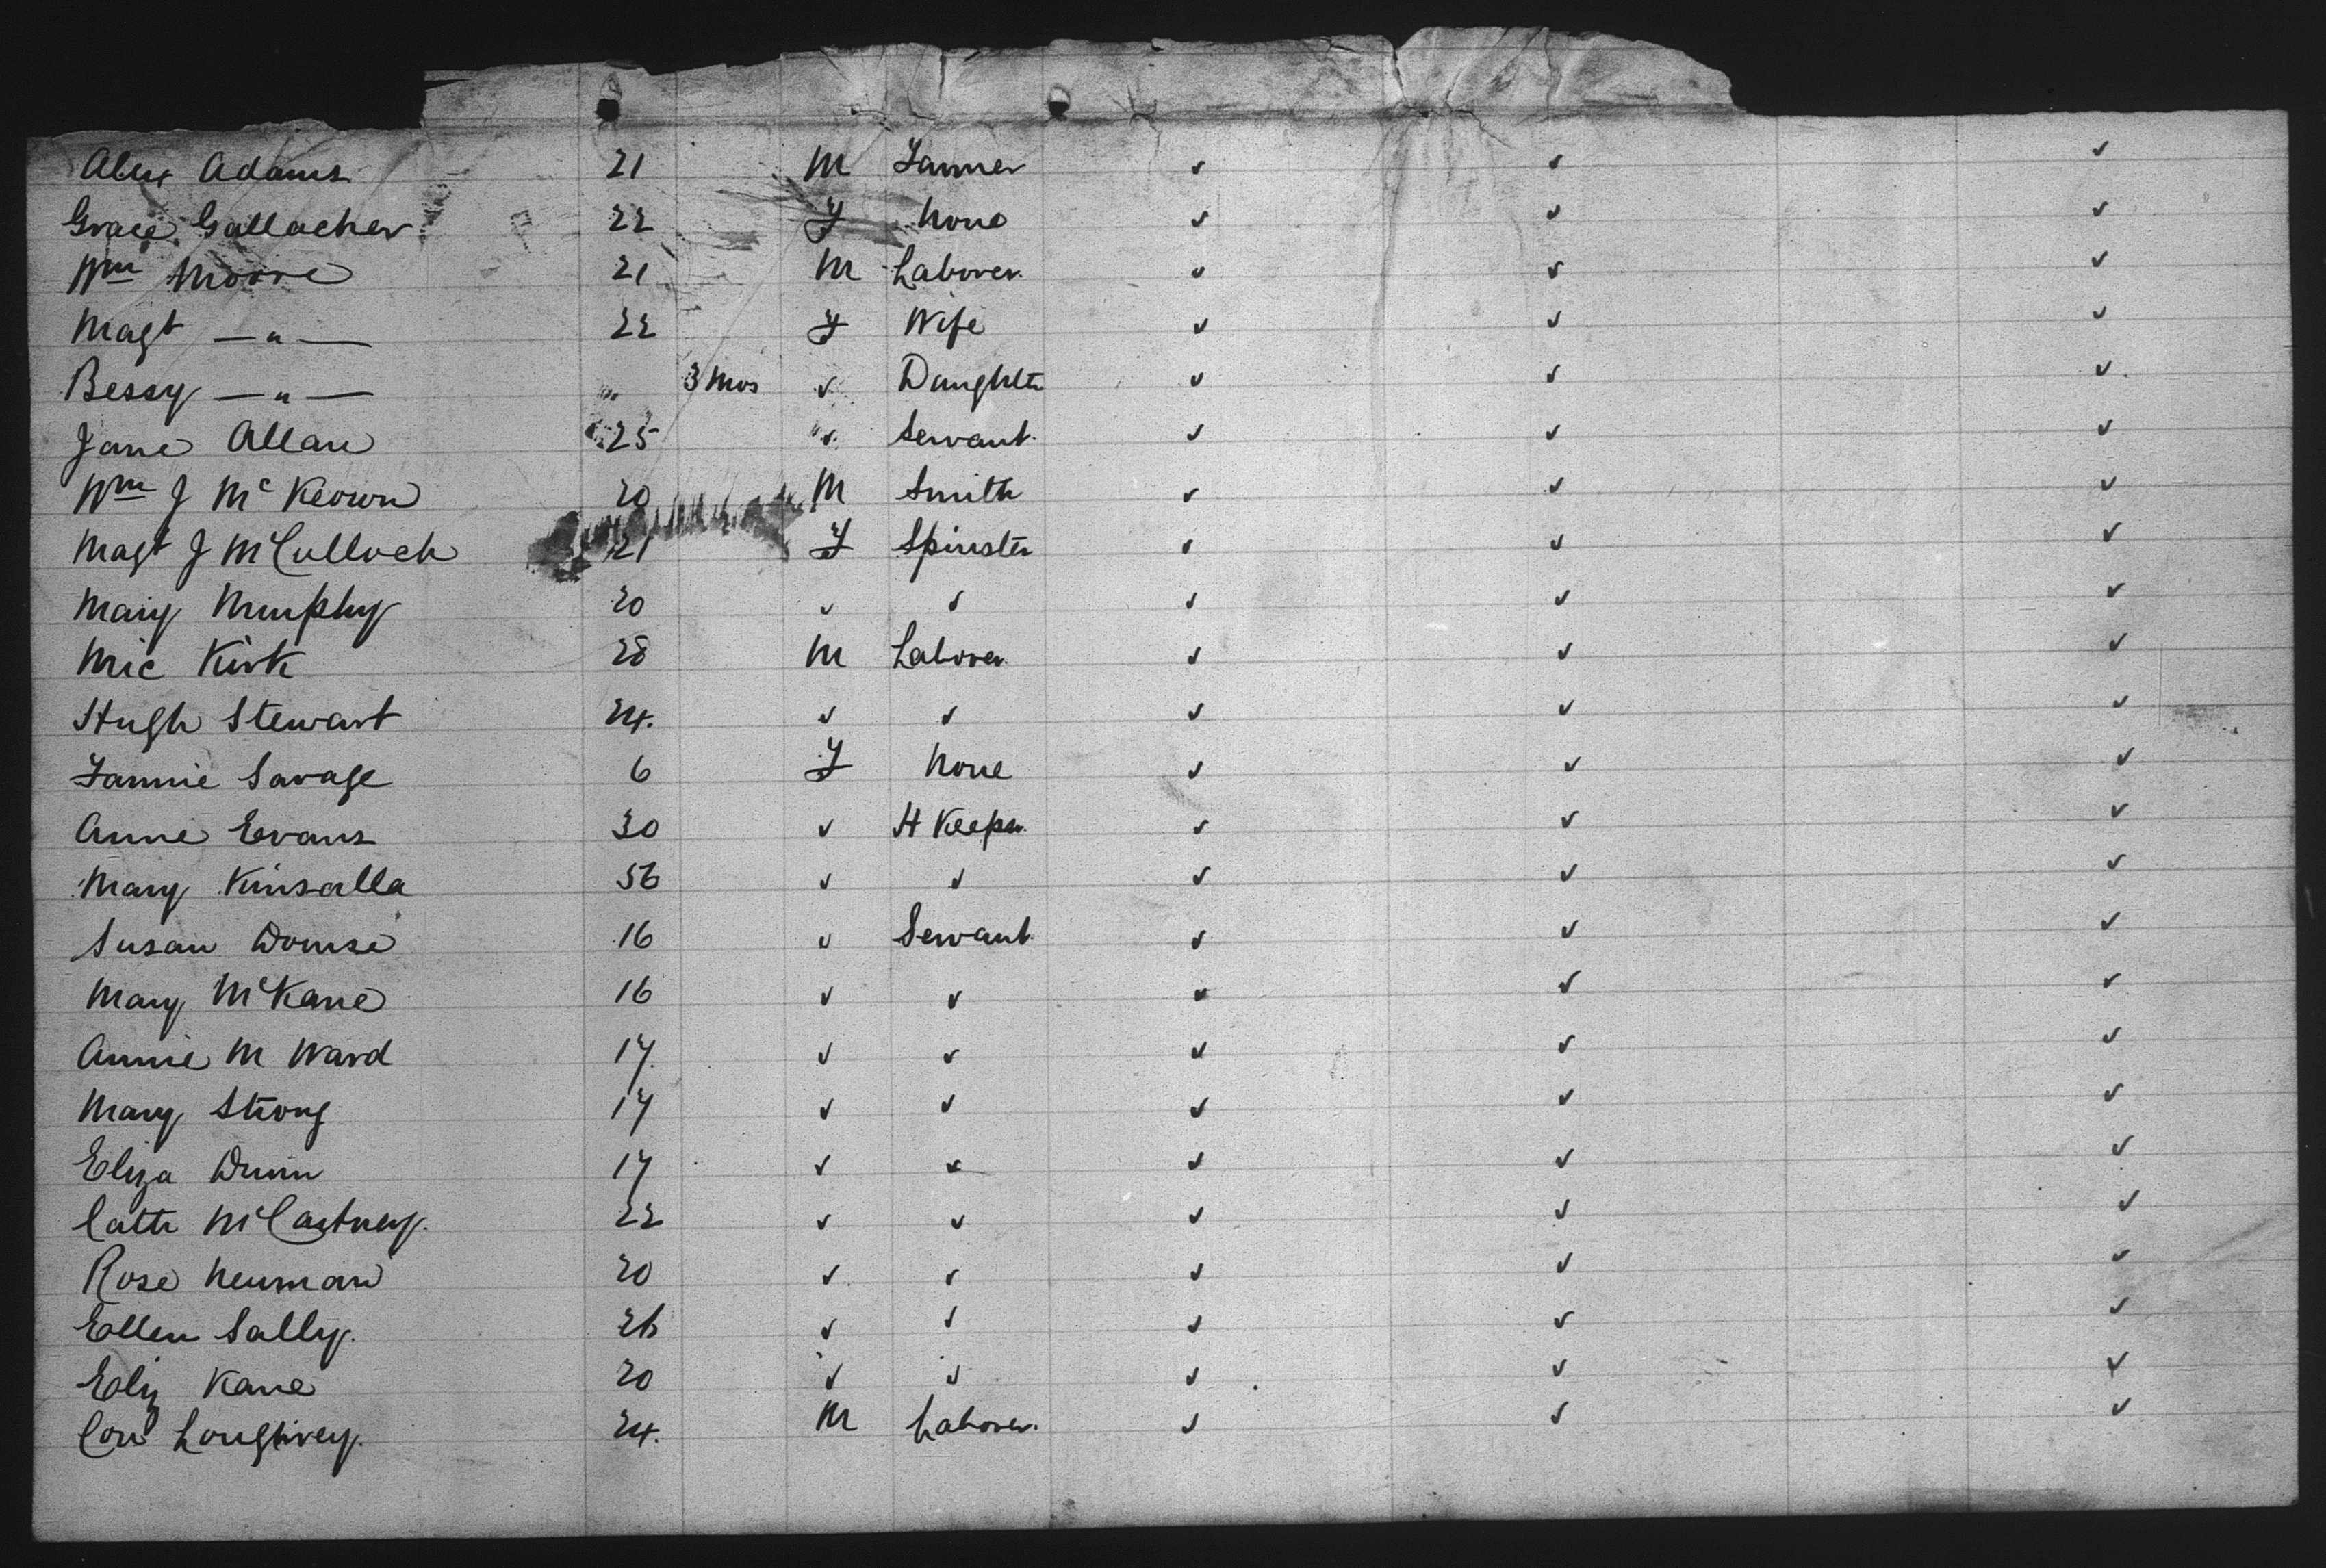 Alex Adams 21 M Farmer ✓ ✓ ✓
Grace Gallacher 22 F None ✓ ✓ ✓
Wm Moore 21 M Laborer ✓ ✓ ✓
Magt — " — 22 F Wife ✓ ✓ ✓
Bessy — " — 3 Mos ✓ Daughter ✓ ✓ ✓
Jane Allan 25 ✓ Servant ✓ ✓ ✓
Wm J McKeown 20 M Smith ✓ ✓ ✓
Magt J McCulloch 21 F Spinster ✓ ✓ ✓
Mary Murphy 20 ✓ ✓ ✓ ✓ ✓
Mic Kirk 28 M Laborer ✓ ✓ ✓
Hugh Stewart 24. ✓ ✓ ✓ ✓ ✓
Fannie Savage 6 F None ✓ ✓ ✓
Anne Evans 30 ✓ H Keeper ✓ ✓ ✓
Mary Kinsalla 56 ✓ ✓ ✓ ✓ ✓
Susan 16 ✓ Servant ✓ ✓ ✓
Mary McKane 16 ✓ ✓ ✓ ✓ ✓
Annie M Ward 17 ✓ ✓ ✓ ✓ ✓
Mary Strong 17 ✓ ✓ ✓ ✓ ✓
Eliza Dunn 17 ✓ ✓ ✓ ✓ ✓
Cath McCartney. 22 ✓ ✓ ✓ ✓ ✓
Rose Neuman 20 ✓ ✓ ✓ ✓ ✓
Ellen Sally. 26 ✓ ✓ ✓ ✓ ✓
Eliz Kane 20 ✓ ✓ ✓ ✓ ✓
Con Loughrey. 24. M Laborer. ✓ ✓ ✓